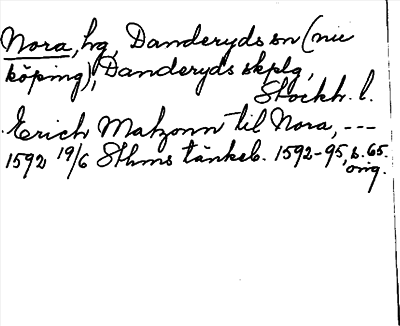 Nora, hg, Danderyds sn (nu
köping), Danderyds skplg,
Stockh. l.
Erich Matzonn til Nora, ---
1592 19/6 Sthms tänkeb. 1592-95, s. 65.
orig.